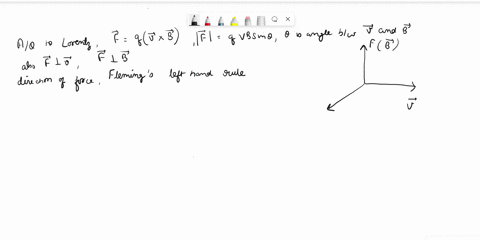 A/Q to Lorentz, F⃗ = q(V⃗ × B⃗), |F⃗| = q VB sinθ, θ is angle b/w V⃗ and B⃗
also F⃗ ⊥ V⃗, F⃗ ⊥ B⃗
direction of force, Fleming's left hand rule
F(B⃗)
V⃗